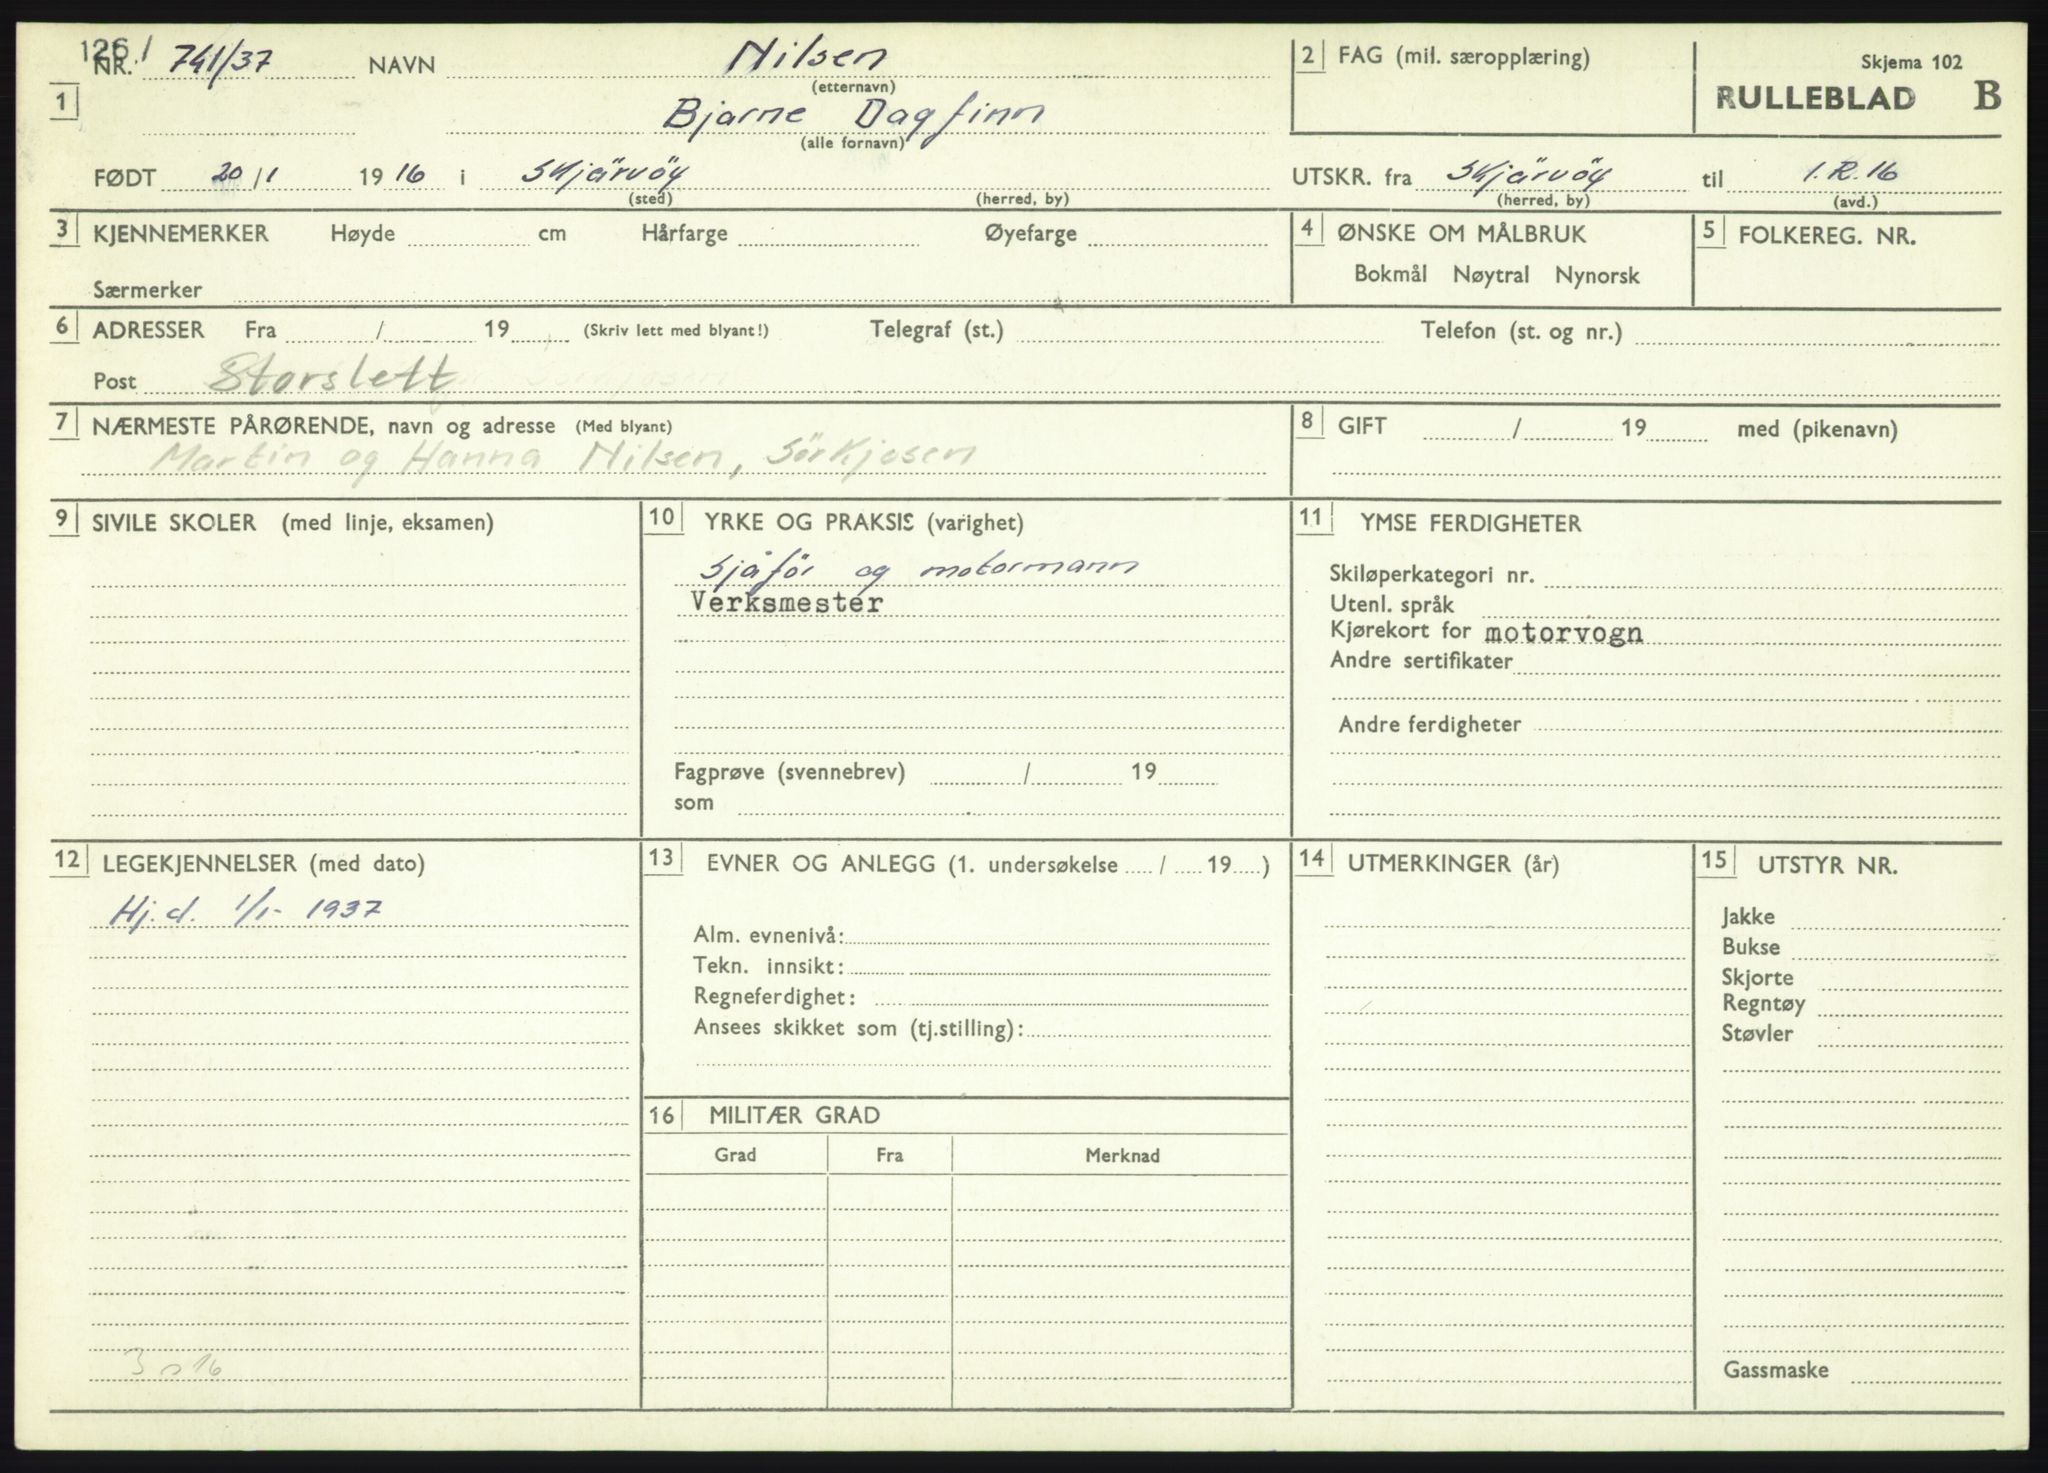 126.1
NR. 741/37 NAVN Nilsen
(etternavn)
1 Bjarne Dagfinn
(alle fornavn)
2 FAG (mil. særopplæring)
Skjema 102
RULLEBLAD B
FØDT 20/1 1916 i Skjärvöy
(sted) (herred, by)
UTSKR. fra Skjärvöy til I.R.16
(herred, by) (avd.)
3 KJENNEMERKER Høyde cm Hårfarge Øyefarge
Særmerker
4 ØNSKE OM MÅLBRUK
Bokmål Nøytral Nynorsk
5 FOLKEREG. NR.
6 ADRESSER Fra / 19 (Skriv lett med blyant!) Telegraf (st.) Telefon (st. og nr.)
Post Storslett
7 NÆRMESTE PÅRØRENDE, navn og adresse (Med blyant)
Martin og Hanna Nilsen, Sörkjosen
8 GIFT / 19 med (pikenavn)
9 SIVILE SKOLER (med linje, eksamen)
10 YRKE OG PRAKSIS (varighet)
Sjåför og motormann
Verksmester
Fagprøve (svennebrev) / 19
som
11 YMSE FERDIGHETER
Skiløperkategori nr.
Utenl. språk
Kjørekort for motorvogn
Andre sertifikater
Andre ferdigheter
12 LEGEKJENNELSER (med dato)
Hj.d. 1/1- 1937
3 16
13 EVNER OG ANLEGG (1. undersøkelse / 19 )
Alm. evnenivå:
Tekn. innsikt:
Regneferdighet:
Ansees skikket som (tj.stilling):
16 MILITÆR GRAD
Grad Fra Merknad
14 UTMERKINGER (år)
15 UTSTYR NR.
Jakke
Bukse
Skjorte
Regntøy
Støvler
Gassmaske